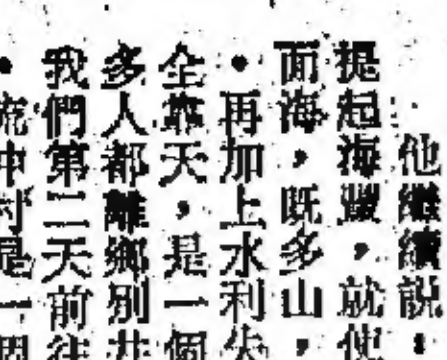 他繼續説：
提起海豐，就使
面海，既多山，
。再加上水利失
全靠天，是一個
多人都離鄉別井
我們第二天前往
。流沖村是一個